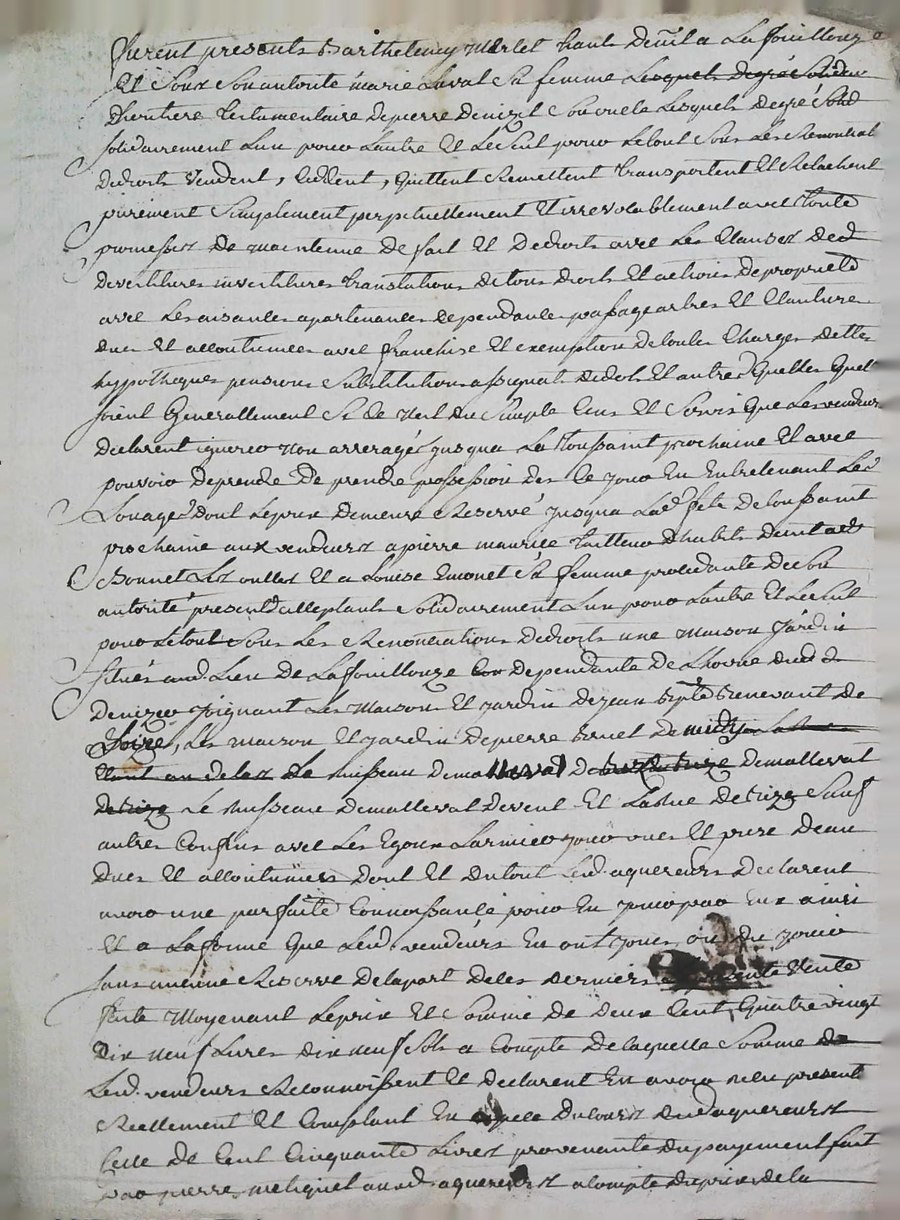 furent presents Barthelemy Merlet habt. de a Lafouillouze
Et Sous Son autorité marie Laval Sa femme Lesquels degré Solider
D'heritiere testamentaire de pierre Son oncle Lesquels de gré Solid
Solidairement Lun pour Lautre Et Le Seul pour Le tout Sous Les
de droits Vendent, ceddent, quittent Remettent transportent Et Relachent
purement Simplement perpetuellement Et irrevocablement avec toute
promesses de maintenue de fait Et de droits avec Les Clauses de
devestitures investitures translations de tous droits Et actions de propriété
avec Les aisances apartenances dependances passage arbres Et Cloature
dues Et accoutumées avec franchise Et exemption de toutes Charges dettes
hypotheques pensions Substitutions assignats de dots Et autres quelles quel
soient Generallement Si Ce n'est du Simple Cens Et Servis que Les vendeurs
declarent ignorer non arreragé jusqua La toussaint prochaine Et avec
pouvoir de prendre de prendre possession des Ce jour En Entretenant Les
Louages dont Le prix demeure Reservé jusqua Lade. fete de toussaint
prochaine aux vendeurs a pierre maurice tailleur d'habits de
Bonnet Les oulles Et a Louise Emonet Sa femme procedante de Son
autorité presents acceptants Solidairement Lun pour Lautre Et Le Seul
pour Le tout Sous Les Renonciations de droits une maison Jardin
Situés aud. Lieu de Lafouillouze dependante de dud
joignant Les maison Et jardin de jean Bpte Thenevant de
Soire, Les maison Et jardin de pierre Bruel de midy
au dela de Le ruisseau de de de malleval
de Bize Le ruisseau de malleval de vent Et La Rue de Bize Sauf
autres Confins avec Les Egoux Larmier jour vues Et prise deau
dues Et accoutumées dont Et du tout Led. aquereurs declarent
avoir une parfaite Connoissance pour En jouir par Eux ainsi
Et a La forme que Led. vendeurs En ont jouis, ou du jouir
sans aucune Reserve de la part de Ces derniers presente Vente
faite moyenant Le prix Et Somme de deux Cent quatre vingt
dix neuf Livres dix neuf Sols a Compte de laquelle Somme
Led. vendeurs Reconnoissent Et declarent En avoir reçu presente
Reellement Et Comptant En du Cours desd aquereurs
Celle de Cent Cinquante Livres provenante du payement fait
par pierre meliquet auxd. aquereurs a compte du prix de la